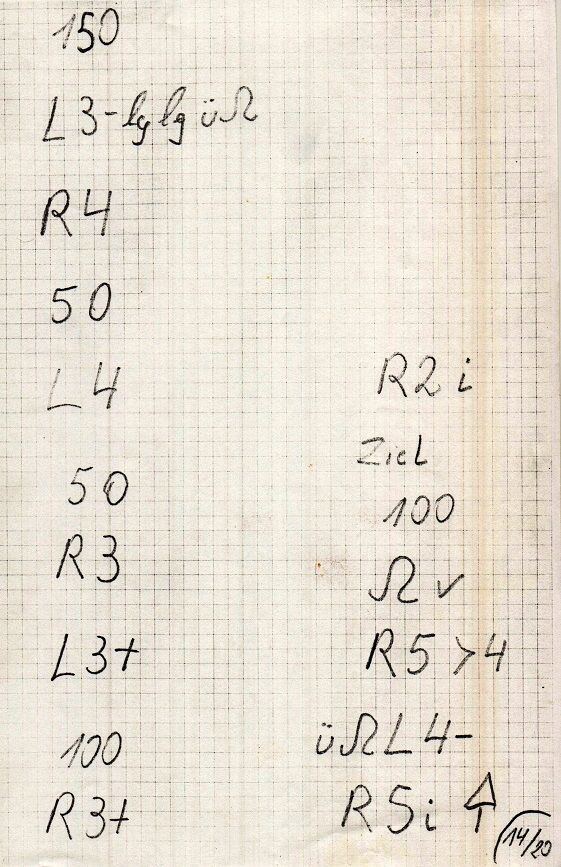 150
L3-lg lg üΩ
R4
50
L4
50
R3
L3+
100
R3+
R2 i
Ziel
100
Ω v
R5 >4
üΩ L 4-
R5i ↑
14/20